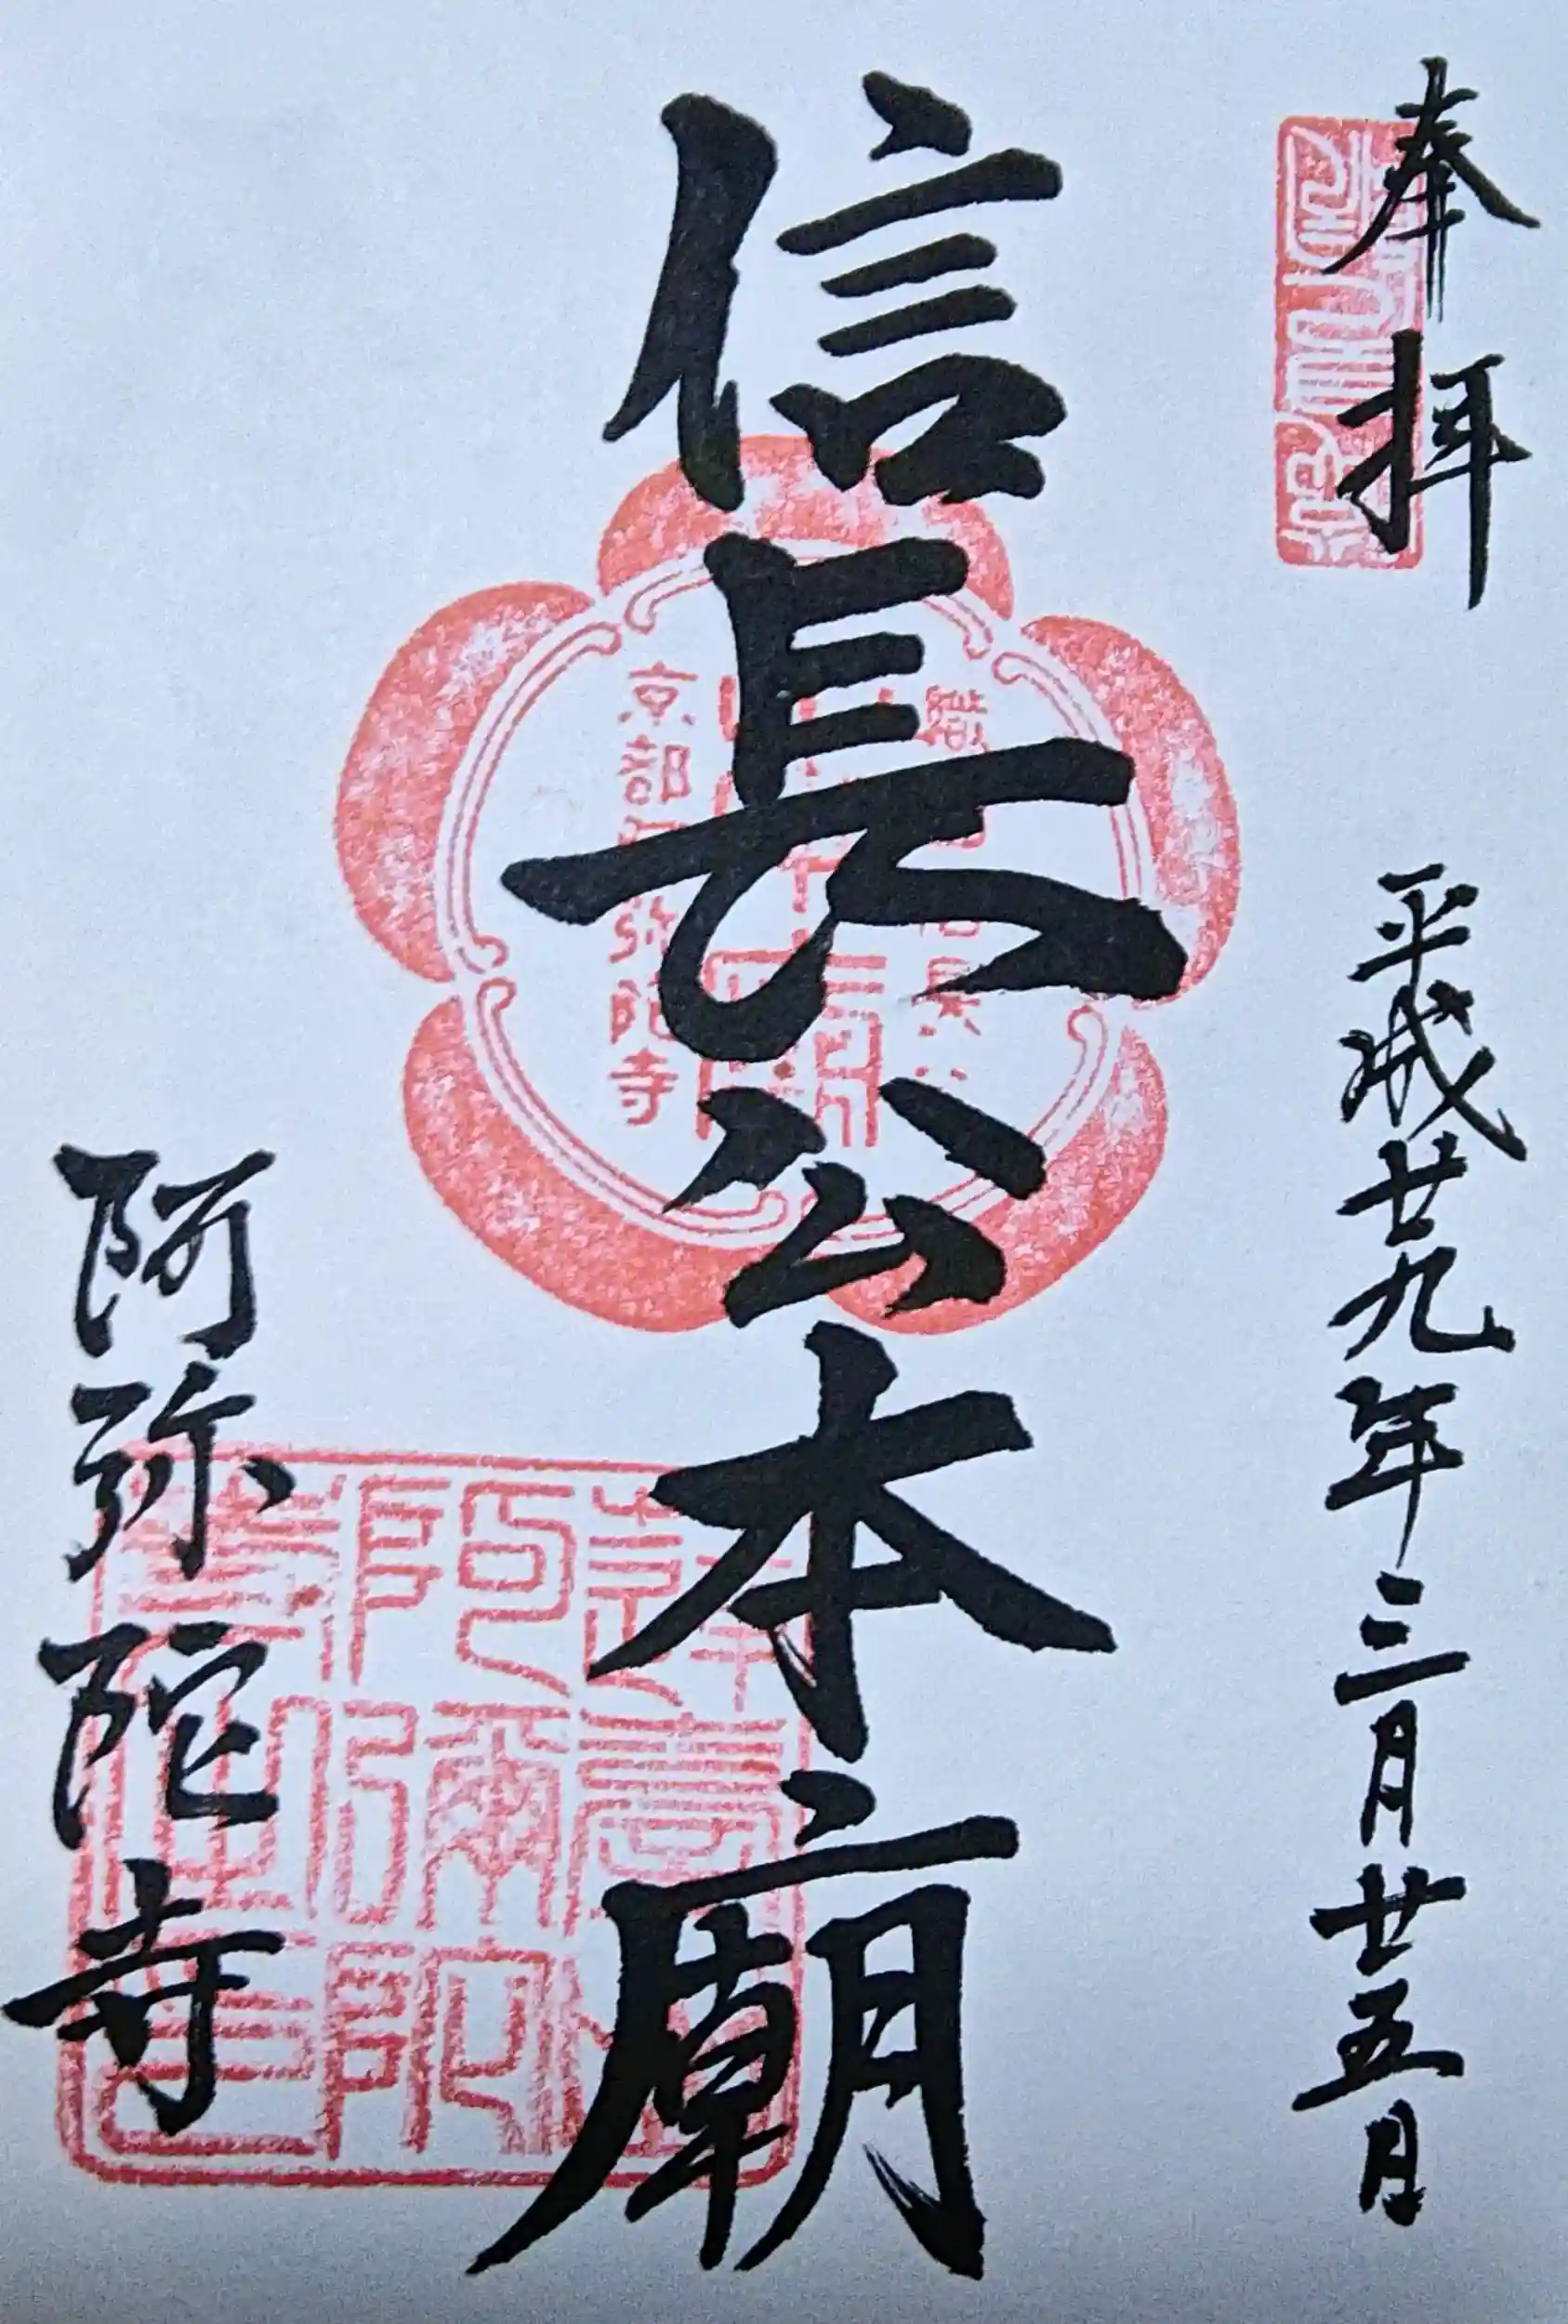 奉拝
平成廿九年三月廿五日
信長公本廟
京都阿弥陀寺
阿弥陀寺